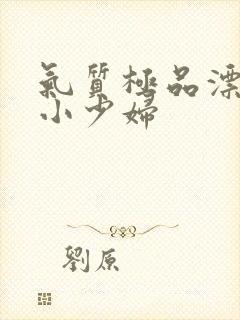 氣質極品漂
小少婦
劉原